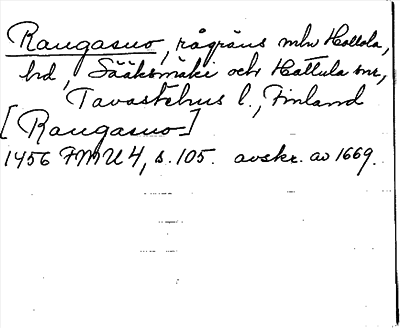 Raugasuo, rågräns mln Hattola,
hd, Sääksmäki och Hattula snr,
Tavastehus l., Finland
[Raugasuo]
1456 FMU 4, s. 105. avskr. av 1669.